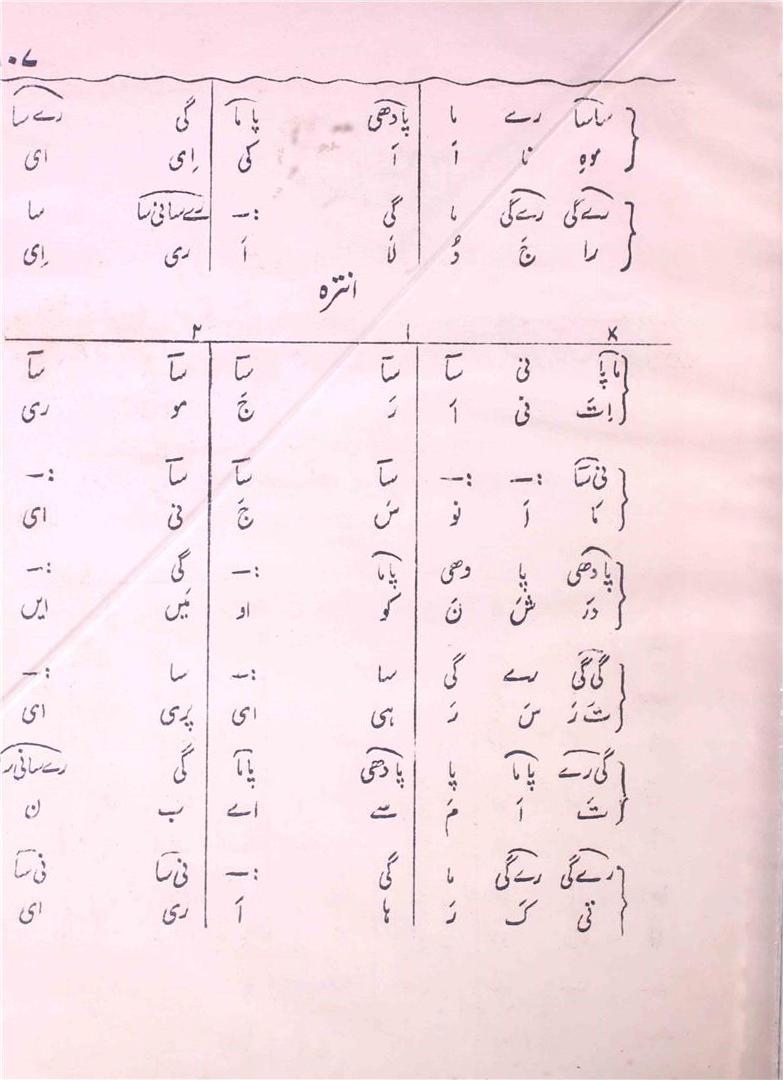 ساسا رے ما پادھی پاما گی رےسا
موہِ نا اَ اَ کی اِی ای
رےگی رےگی ما گی :— رےسانی‌سا سا
را جَ دُ لَا اَ ری اِی
انترہ
× ۱ ۲
ماپا نی سآ سآ سآ سآ سآ
اِتَ نی اَ رَ جَ مو ری
نی‌سآ :— :— سآ سآ سآ :—
مَا اَ نو سَ جَ نی ای
پادھی پا دھی پاما :— گی :—
دَرَ شَ نَ کو او مَیں ایں
گی‌گی رے گی سا :— سا :—
تَ رَ سَ رَ ہی ای پِری ای
گی‌رے پاما پا پادھی پاما گی
تَ اَ مَ سے اے ب ن
رےگی رےگی ما گی :— نی‌سآ نی‌سآ
تی کَ رَ ہا اَ ری ای